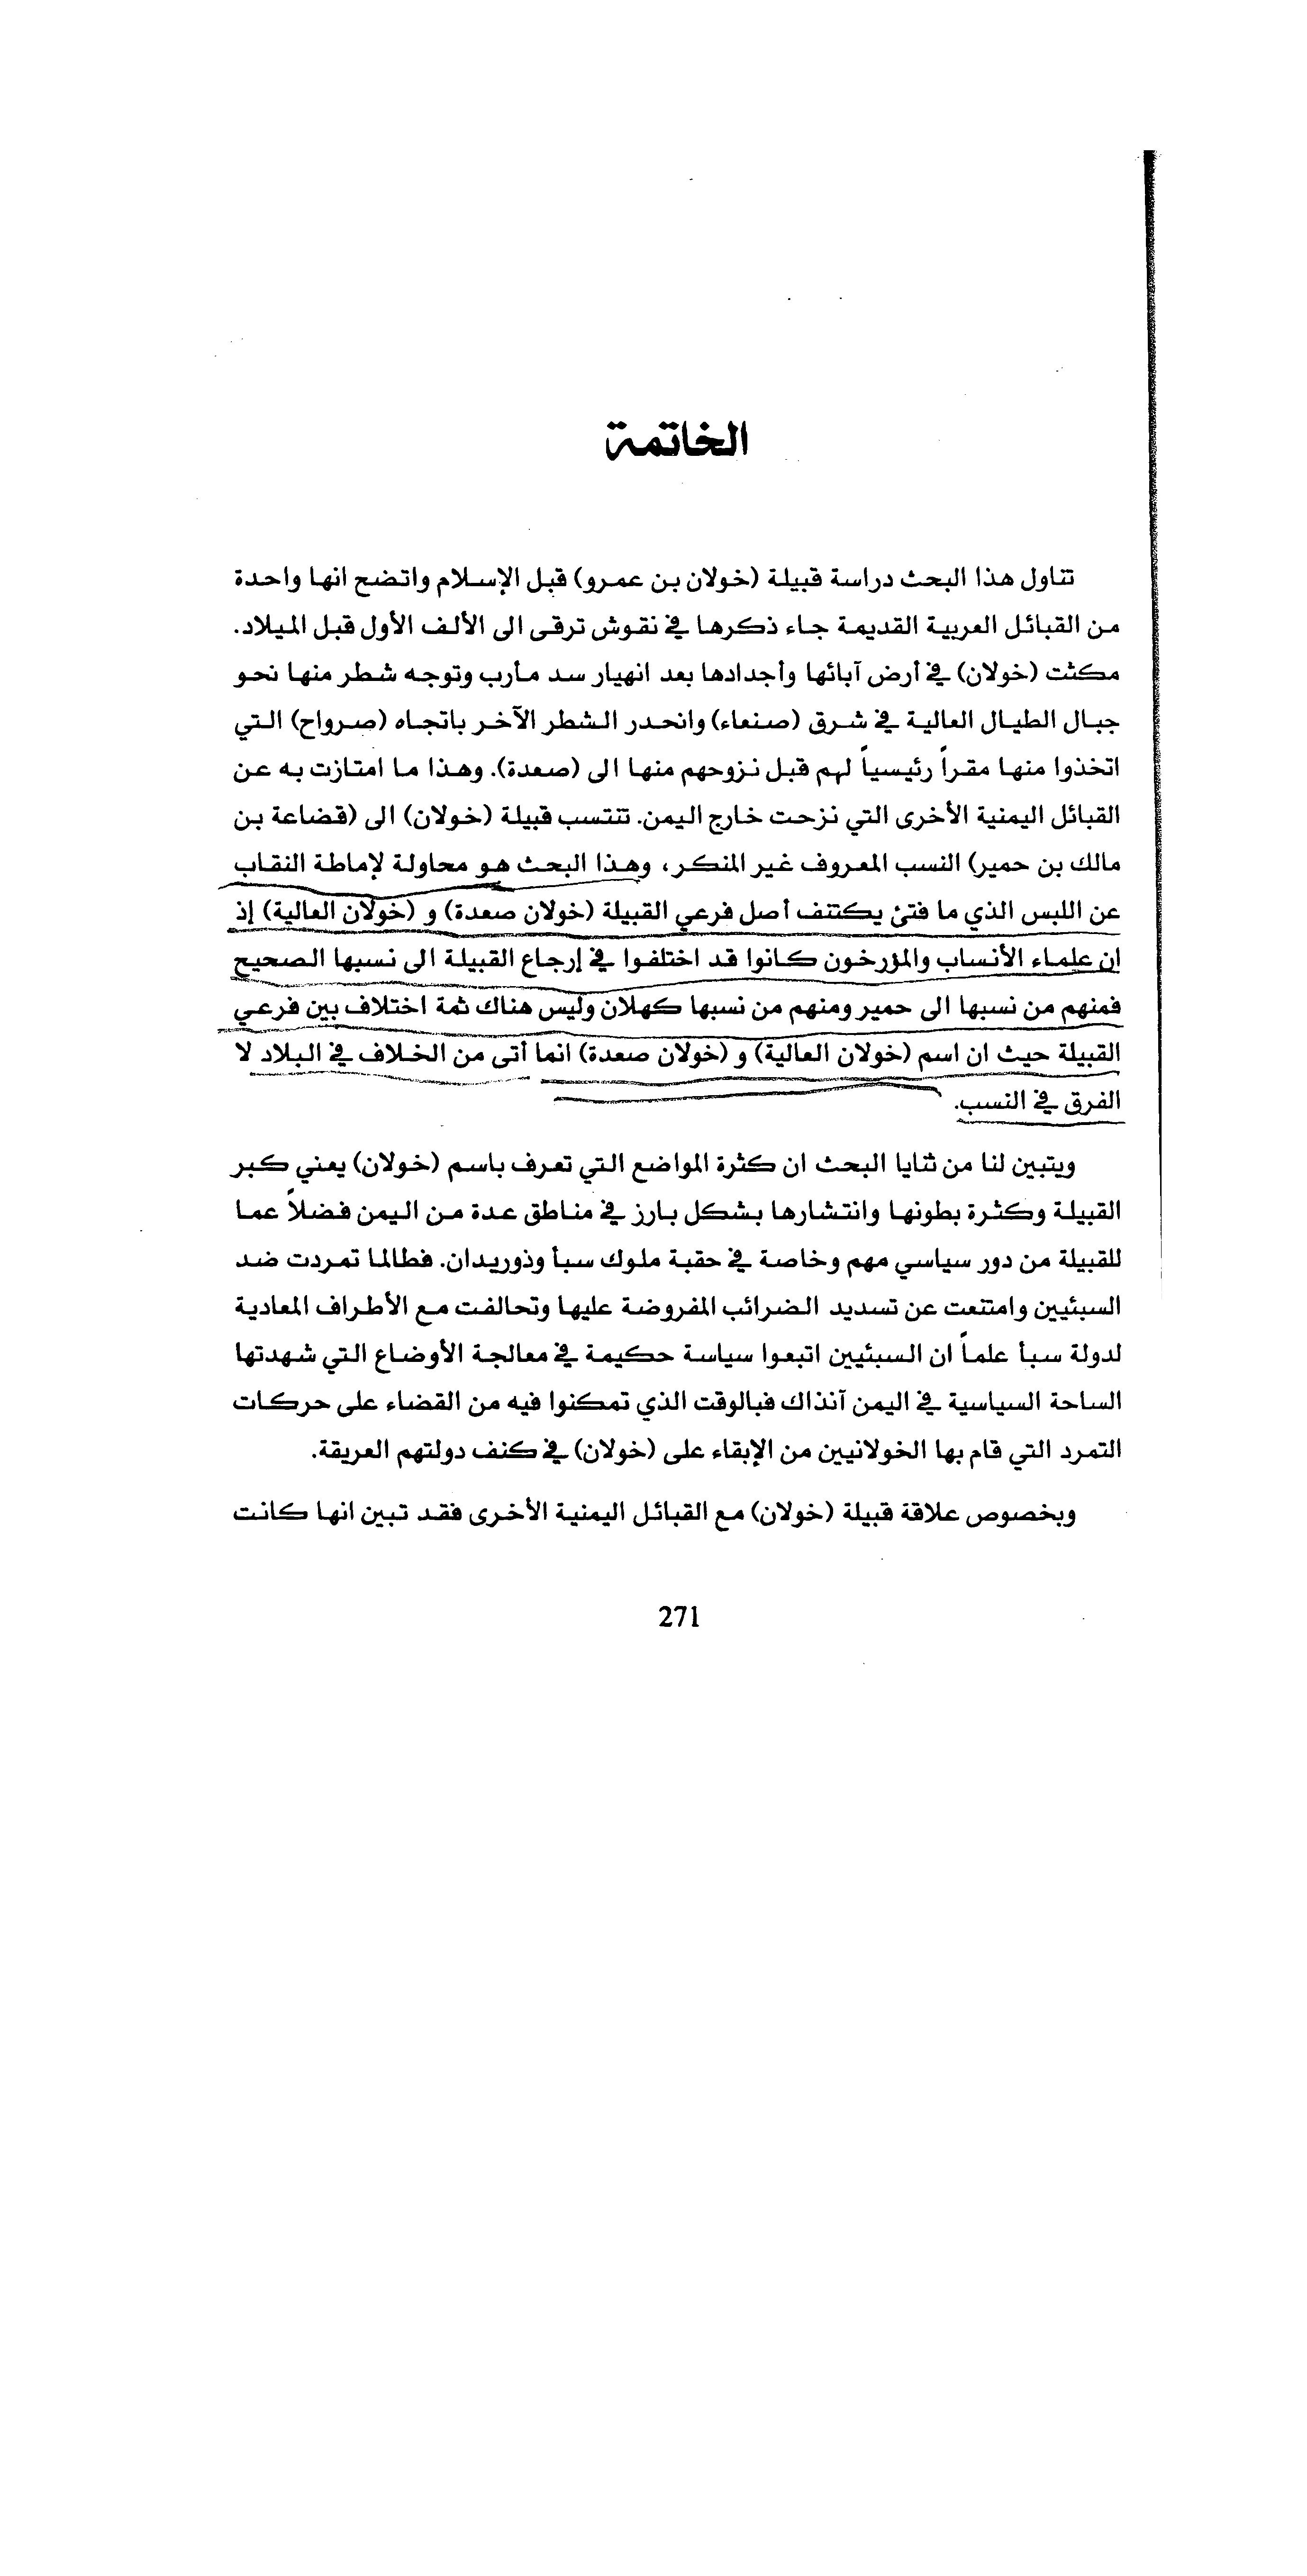 الخاتمة
تناول هذا البحث دراسة قبيلة (خولان بن عمرو) قبل الإسلام واتضح انها واحدة
من القبائل العربية القديمة جاء ذكرها في نقوش ترقى الى الألف الأول قبل الميلاد.
مكثت (خولان) في أرض آبائها وأجدادها بعد انهيار سد مأرب وتوجه شطر منها نحو
جبال الطيال العالية في شرق (صنعاء) وانحدر الشطر الآخر باتجاه (صرواح) التي
اتخذوا منها مقراً رئيسياً لهم قبل نزوحهم منها الى (صعدة). وهذا ما امتازت به عن
القبائل اليمنية الأخرى التي نزحت خارج اليمن. تنتسب قبيلة (خولان) الى (قضاعة بن
مالك بن حمير) النسب المعروف غير المنكر، وهذا البحث هو محاولة لإماطة النقاب
عن اللبس الذي ما فتئ يكتنف أصل فرعي القبيلة (خولان صعدة) و (خولان العالية) إذ
ان علماء الأنساب والمؤرخون كانوا قد اختلفوا في إرجاع القبيلة الى نسبها الصحيح
فمنهم من نسبها الى حمير ومنهم من نسبها كهلان وليس هناك ثمة اختلاف بين فرعي
القبيلة حيث ان اسم (خولان العالية) و (خولان صعدة) انما أتى من الخلاف في البلاد لا
الفرق في النسب.
ويتبين لنا من ثنايا البحث ان كثرة المواضع التي تعرف باسم (خولان) يعني كبر
القبيلة وكثرة بطونها وانتشارها بشكل بارز في مناطق عدة من اليمن فضلاً عما
للقبيلة من دور سياسي مهم وخاصة في حقبة ملوك سبأ وذوريدان. فطالما تمردت ضد
السبئيين وامتنعت عن تسديد الضرائب المفروضة عليها وتحالفت مع الأطراف المعادية
لدولة سبأ علماً ان السبئيين اتبعوا سياسة حكيمة في معالجة الأوضاع التي شهدتها
الساحة السياسية في اليمن آنذاك فبالوقت الذي تمكنوا فيه من القضاء على حركات
التمرد التي قام بها الخولانيين من الإبقاء على (خولان) في كنف دولتهم العريقة.
وبخصوص علاقة قبيلة (خولان) مع القبائل اليمنية الأخرى فقد تبين انها كانت
271